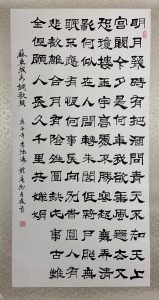 明月幾時有把酒問青天不知天上
宮闕今夕是何年我欲乘風歸去又
恐瓊樓玉宇高處不勝寒起舞弄清
影何似在人間轉朱閣低綺戶照無
眠不應有恨何事長向別時圓人有
悲歡離合月有陰晴圓缺此事古難
全但願人長久千里共嬋娟
蘇東坡水調歌頭